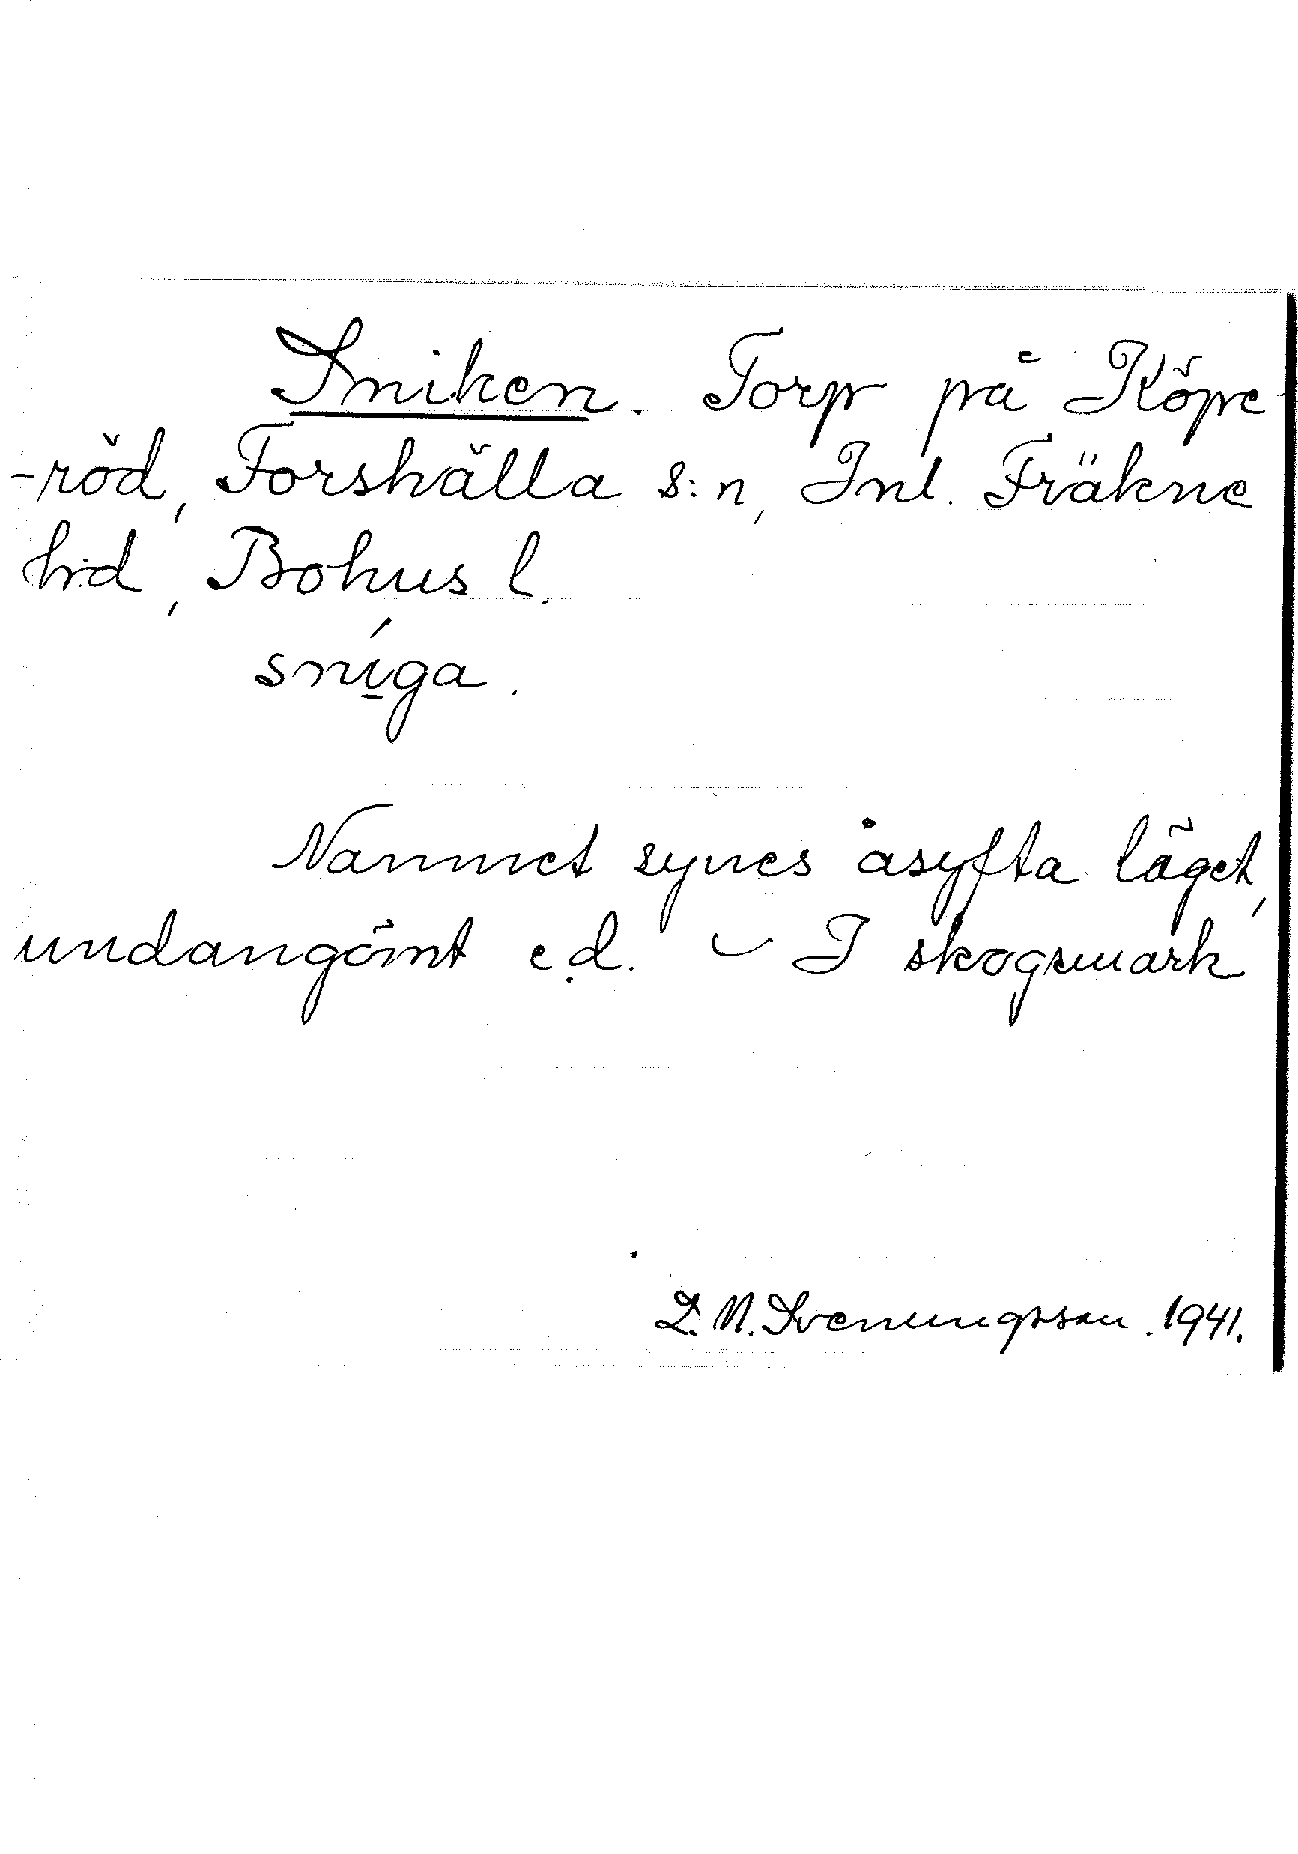 Sniken. Torp på Köpe-
-röd, Forshälla s:n, Inl. Fräkne
hd, Bohus l.
sníga.
Namnet synes åsyfta läget,
undangömt e.d. – I skogsmark
L. N. Svenungsson. 1941.